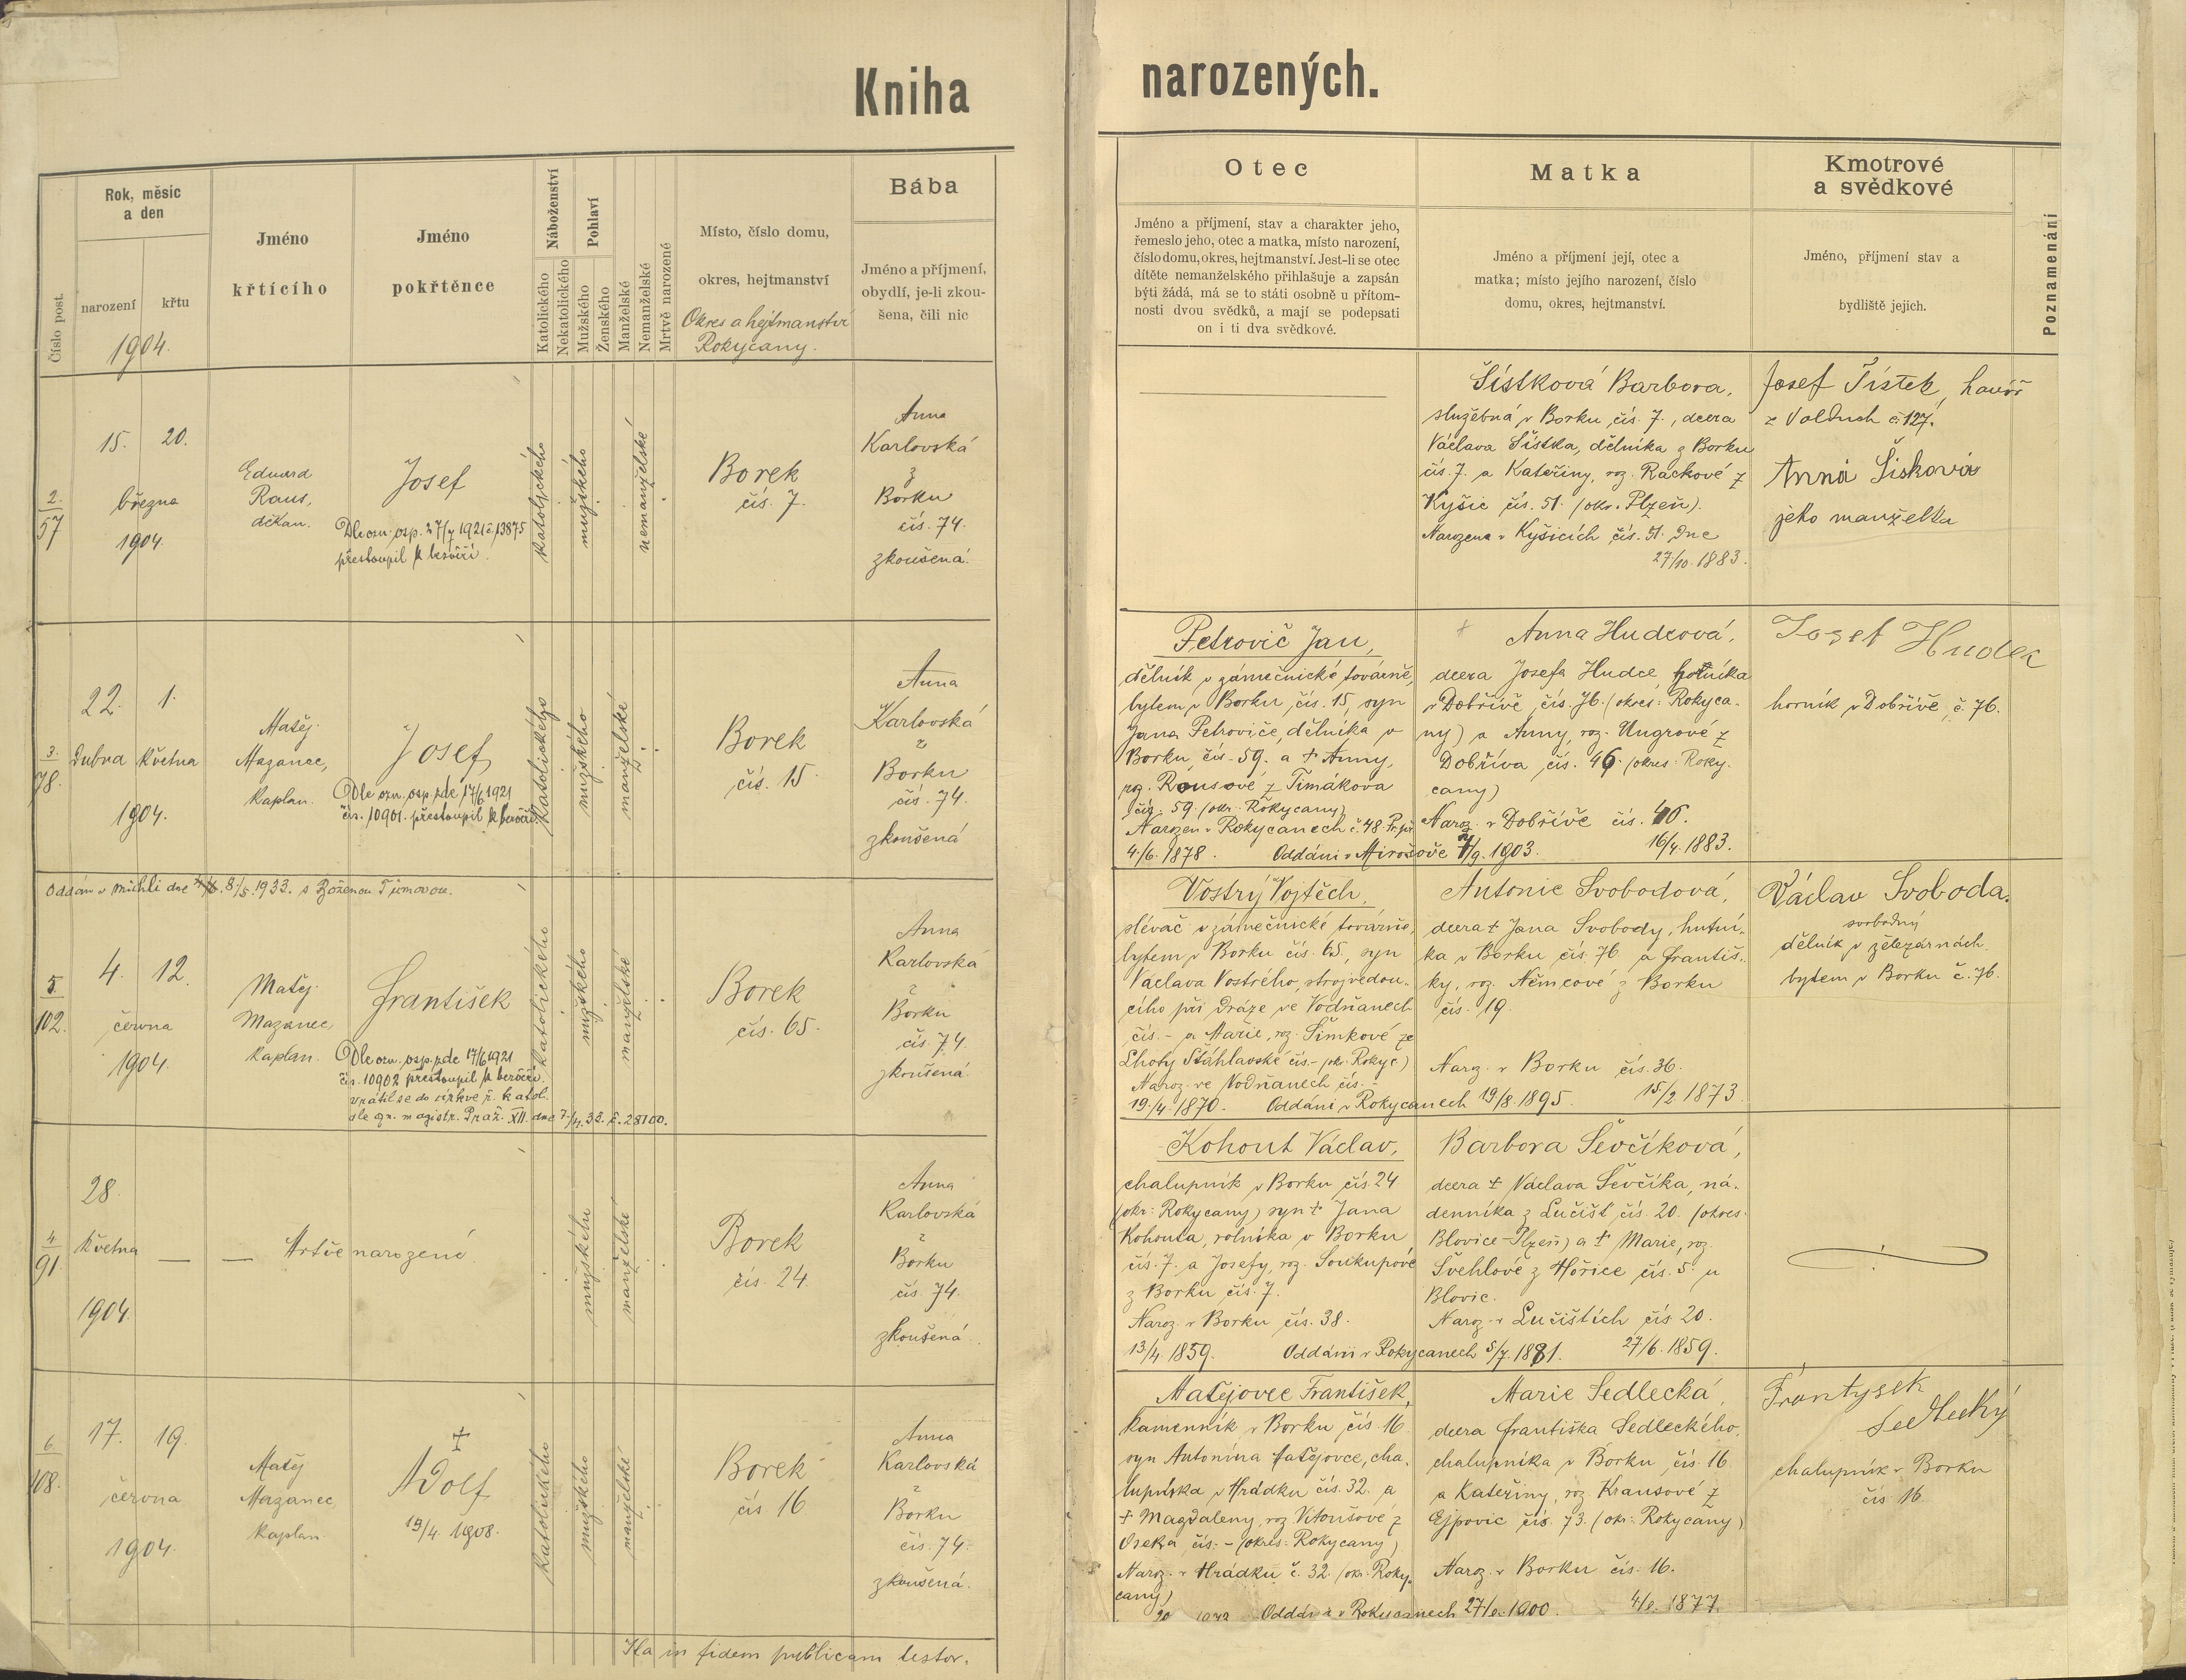 Kniha
narozených.
Číslo post.
Rok, měsíc
a den
narození
křtu
1904.
Jméno
křtícího
Jméno
pokřtěnce
Náboženství
Katolického
Nekatolického
Pohlaví
Mužského
Ženského
Manželské
Nemanželské
Mrtvě narozené
Místo, číslo domu,
okres, hejtmanství
Okres a hejtmanství
Rokycany.
Bába
Jméno a příjmení,
obydlí, je-li zkou-
šena, čili nic
Otec
Jméno a příjmení, stav a charakter jeho,
řemeslo jeho, otec a matka, místo narození,
číslo domu, okres, hejtmanství. Jest-li se otec
dítěte nemanželského přihlašuje a zapsán
býti žádá, má se to státi osobně u přítom-
nosti dvou svědků, a mají se podepsati
on i ti dva svědkové.
Matka
Jméno a příjmení její, otec a
matka; místo jejího narození, číslo
domu, okres, hejtmanství.
Kmotrové
a svědkové
Jméno, příjmení stav a
bydliště jejich.
Poznamenání
2.
57
15. 20.
března
1904.
Eduard
Raus,
děkan.
Josef
Dle ozn. osp. 27/7 1921 č. 13875
přestoupil k bezvěří.
katolického
mužského
nemanželské
Borek
čís. 7.
Anna
Karlovská
z
Borku
čís. 74.
zkoušená.
Šístková Barbora,
služebná v Borku čís. 7., dcera
Václava Šístka, dělníka z Borku
čís. 7. a Kateřiny, roz. Ráckové z
Kyšic čís. 51. (okr. Plzeň).
Narozena v Kyšicích čís. 51. dne
27/10. 1883.
Josef Šístek, havíř
z Volduch č. 127.
Anna Šísková
jeho manželka
3.
78.
22. 1.
dubna května
1904.
Matěj
Mazanec,
kaplan.
Josef
Dle ozn. osp. zde 17/6 1921
čís. 10901. přestoupil k bezvěří.
katolického
mužského
manželské
Borek
čís. 15.
Anna
Karlovská
z
Borku
čís. 74.
zkoušená
Petrovič Jan,
dělník v zámečnické továrně,
bytem v Borku čís. 15, syn
Jana Petroviče, dělníka v
Borku čís. 59. a † Anny,
roz. Rousové z Timákova
čís. 59. (okr. Rokycany)
Narozen v Rokycanech č. 48. Pr. př.
4./6. 1878. Oddáni v Mirošově 7/9. 1903.
Anna Hudcová,
dcera Josefa Hudce, horníka
v Dobřívě čís. 76. (okres: Rokyca-
ny) a Anny, roz. Ungrové z
Dobříva čís. 46. (okres: Roky-
cany)
Naroz. v Dobřívě čís. 46.
16/4. 1883.
Josef Hudec
horník v Dobřívě, č. 76.
Oddán v Michli dne 8./5. 1933. s Boženou
5
102.
4. 12.
června
1904.
Matěj
Mazanec,
kaplan.
František
Dle ozn. osp. zde 17/6 1921
čís. 10902 přestoupil k bezvěří.
vrátil se do církve ř. katol.
dle ozn. magistr. Praž. XII. dne 7./4. 33. č. 28100.
katolického
mužského
manželské
Borek
čís. 65.
Anna
Karlovská
z
Borku
čís. 74.
zkoušená
Vostrý Vojtěch,
slévač v zámečnické továrně,
bytem v Borku čís. 65., syn
Václava Vostrého, strojvedou-
cího při dráze ve Vodňanech
čís. - a Marie, roz. Šimkové ze
Lhoty Šťáhlavské čís. - (okr. Rokyc.)
Naroz. ve Vodňanech čís. -
19./4. 1870. Oddáni v Rokycanech 19/8. 1895.
Antonie Svobodová,
dcera † Jana Svobody, hutní-
ka v Borku čís. 76. a Františ-
ky, roz. Němcové z Borku
čís. 19.
Naroz. v Borku čís. 36.
15./2. 1873.
Václav Svoboda.
svobodný
dělník v železárnách,
bytem v Borku č. 76.
4
91.
28.
května
1904.
— — Mrtvě narozené
mužského
manželské
Borek
čís. 24.
Anna
Karlovská
z
Borku
čís. 74.
zkoušená
Kohout Václav,
chalupník v Borku čís. 24
(okr: Rokycany) syn † Jana
Kohouta, rolníka v Borku
čís. 7. a Josefy, roz. Soukupové
z Borku čís. 7.
Naroz. v Borku čís. 38.
13/4 1859. Oddáni v Rokycanech 5/7. 1881.
Barbora Ševčíková,
dcera † Václava Ševčíka, ná-
denníka z Lučišť čís. 20. (okres:
Blovice-Plzeň) a † Marie, roz.
Švehlové z Hořice čís. 5. u
Blovic.
Naroz. v Lučištích čís. 20.
27/6. 1859.
6.
108.
17. 19.
června
1904.
Matěj
Mazanec,
kaplan.
†
Adolf
19/4. 1908.
katolického
mužského
manželské
Borek
čís. 16.
Anna
Karlovská
z
Borku
čís. 74.
zkoušená.
Matějovec František,
kameník v Borku čís. 16
syn Antonína Matějovce, cha-
lupníka v Hrádku čís. 32. a
† Magdaleny, roz. Vitoušové z
Oseka čís. - (okres: Rokycany)
Naroz. v Hrádku č. 32. (okr. Roky-
cany)
Oddáni v Rokycanech 1900.
Marie Sedlecká,
dcera Františka Sedleckého,
chalupníka v Borku čís. 16
a Kateřiny, roz. Krausové z
Ejpovic čís. 73. (okr: Rokycany)
Naroz. v Borku čís. 16.
1877.
Frantysek
Sedlecký
chalupník v Borku
čís. 16.
Ita in fidem publicam testor.